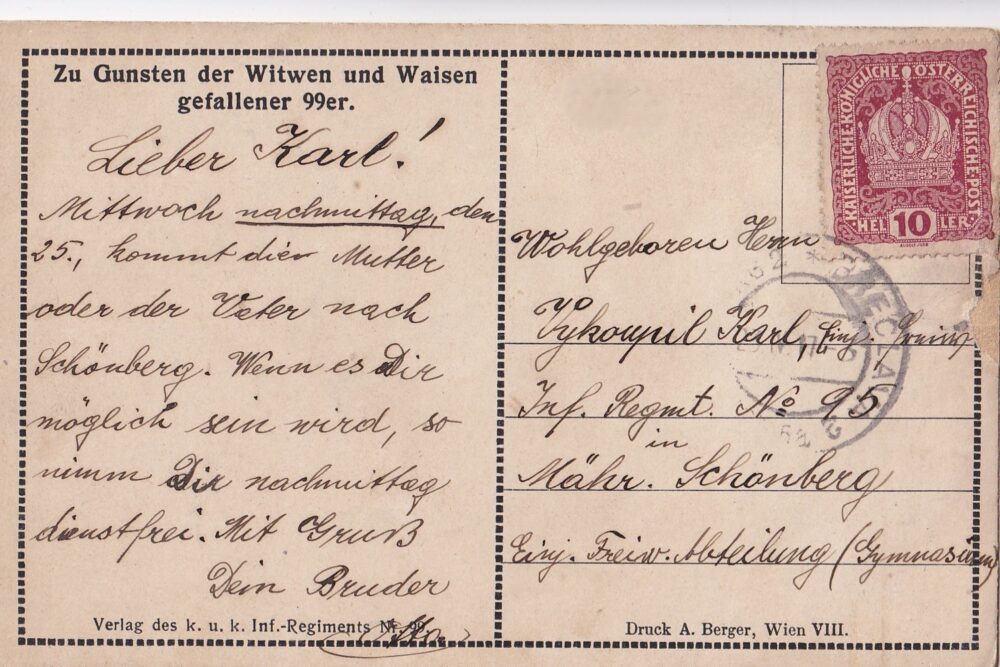 Zu Gunsten der Witwen und Waisen
gefallener 99er.
Lieber Karl!
Mittwoch nachmittag, den
25., kommt die Mutter
oder der Vater nach
Schönberg. Wenn es Dir
möglich sein wird, so
nimm Dir nachmittag
dienstfrei. Mit Gruß
Dein Bruder
Verlag des k. u. k. Inf.-Regiments Nr. 99.
KAISERLICHE KÖNIGLICHE ÖSTERREICHISCHE POST
HEL 10 LER
Wohlgeboren Herrn
Vykoupil Karl, Einj. Freiw.
Inf. Regmt. No 95
in
Mähr. Schönberg
Einj. Freiw. Abteilung (Gymnasium)
BŘECLAV 2
Druck A. Berger, Wien VIII.